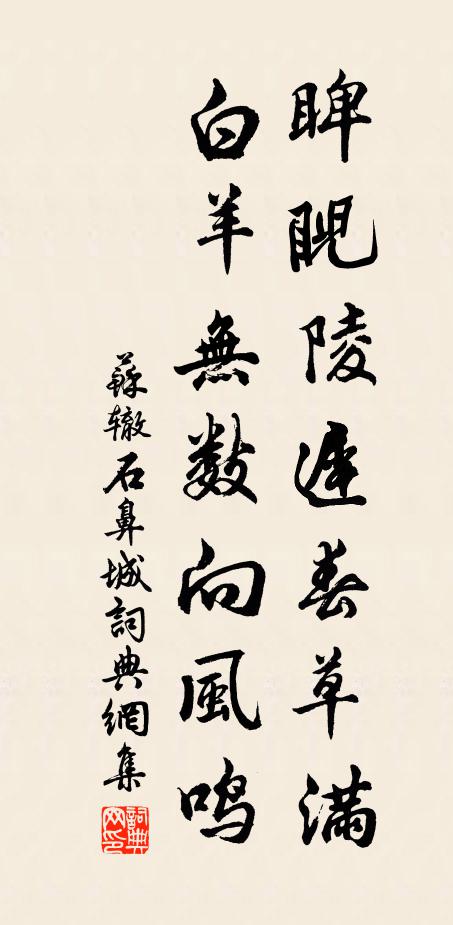 睥睨陵遲春草滿
白羊無数向風鳴
蘇辙石鼻城詞典網集
詞典網印